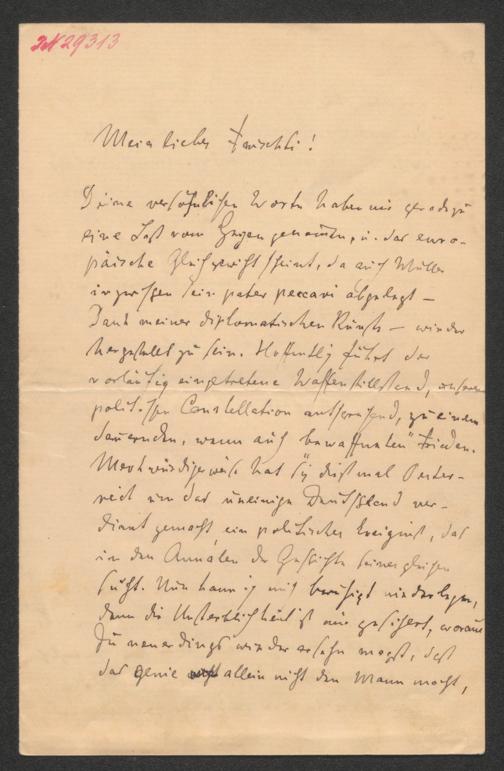 IN 29313
Mein lieber Frischli!
Deine versöhnlichen Worte haben mir geradezu
eine Last vom Herzen genommen, u. das euro-
päische Gleichgewicht scheint, da auch Müller
inzwischen sein pater peccavi abgelegt –
Dank meiner diplomatischen Künste – wieder
hergestellt zu sein. Hoffentlich führt der
vorläufig eingetretene Waffenstillstand, unserer
politischen Constellation entsprechend, zu einem
dauernden, wenn auch "bewaffneten" Frieden.
Merkwürdigerweise hat sich dießmal Oester-
reich um das uneinige Deutschland ver-
dient gemacht ein politisches Ereigniß, das
in den Annalen der Geschichte seines gleichen
sucht. Nun kann ich mich beruhigt niederlegen,
denn die Unsterblichkeit ist mir gesichert, woraus
Du neuerdings wieder ersehn magst, daß
das Genie allein nicht den Mann macht,